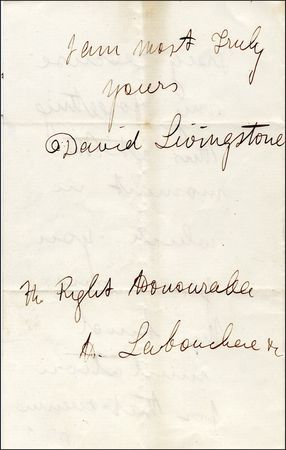 I am most Truly
yours
David Livingstone
The Right Honourable
H. Labouchere &c